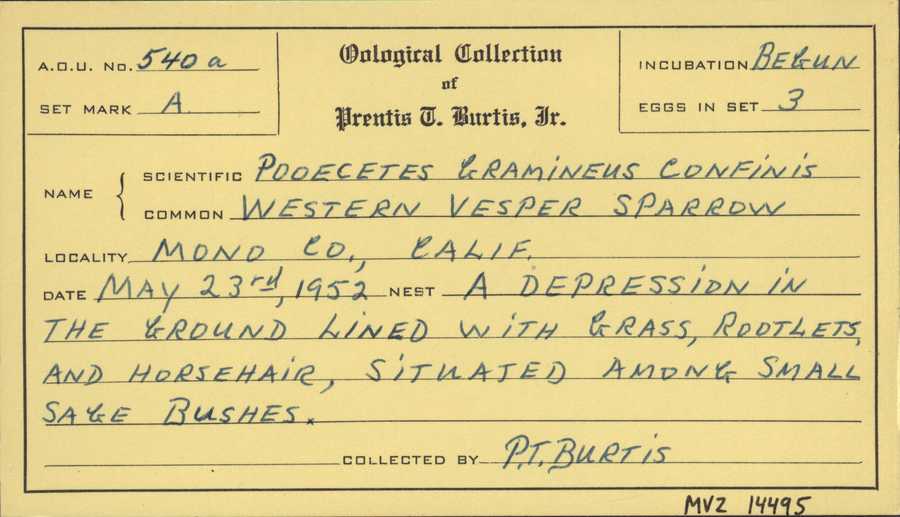 A.O.U. No. 540a
SET MARK A
Oological Collection
of
Prentis T. Burtis, Jr.
INCUBATION BEGUN
EGGS IN SET 3
NAME { SCIENTIFIC POOECETES GRAMINEUS CONFINIS
COMMON WESTERN VESPER SPARROW
LOCALITY MONO CO., CALIF.
DATE MAY 23rd, 1952 NEST A DEPRESSION IN
THE GROUND LINED WITH GRASS, ROOTLETS,
AND HORSEHAIR, SITUATED AMONG SMALL
SAGE BUSHES.
COLLECTED BY P.T. BURTIS
MVZ 14495